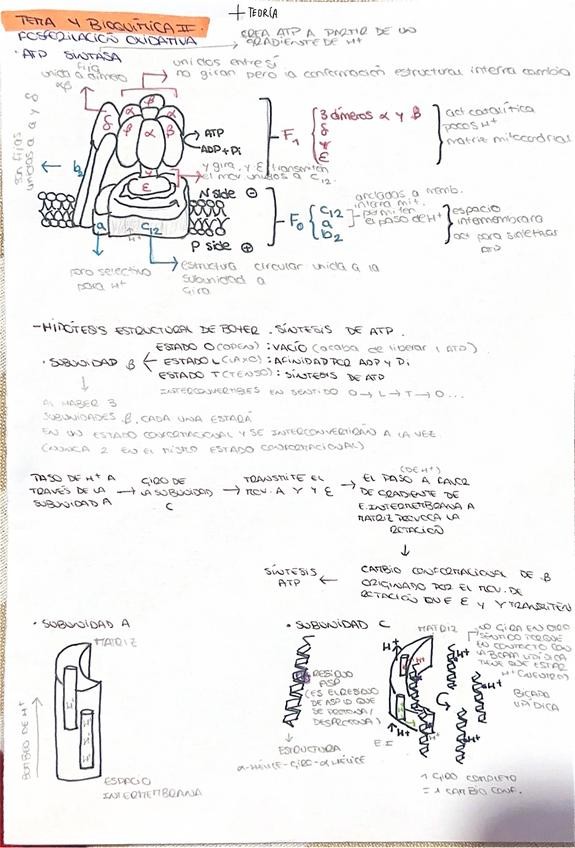 + TEORÍA
TEMA 4 BIOQUÍMICA II
FOSFORILACIÓN OXIDATIVA → CREA ATP A PARTIR DE UN
GRADIENTE DE H+
· ATP SINTASA
fija
unida a dímero
αβ
unidos entre sí
no giran pero la conformación estructural interna cambia
son fijas
unidos a α y δ
b2
δ
β
α
β
α
β
ATP
ADP + Pi
γ
ε
γ gira, γ y ε transmiten
el mov unidos a C12.
F1
3 dímeros α y β
δ
γ
ε
act catalítica
pocos H+
matriz mitocondrias
N side ⊖
P side ⊕
a
C12
H+
F0
C12
a
b2
anclados a memb.
interna mit.
permiten
el paso de H+
espacio
intermembrana
act para sintetizar
ATP
poro selectivo
para H+
estructura circular unida a la
subunidad a
gira
- HIPÓTESIS ESTRUCTURAL DE BOYER. SÍNTESIS DE ATP.
· SUBUNIDAD β
ESTADO O (OPEN): VACÍO (acaba de liberar 1 ATP)
ESTADO L (LAXO): AFINIDAD POR ADP y Pi
ESTADO T (TENSO): SÍNTESIS DE ATP
INTERCONVERTIBLES EN SENTIDO O → L → T → O...
AL HABER 3
SUBUNIDADES β, CADA UNA ESTARÁ
EN UN ESTADO CONFORMACIONAL Y SE INTERCONVERTIRÁN A LA VEZ.
(NUNCA 2 EN EL MISMO ESTADO CONFORMACIONAL)
PASO DE H+ A
TRAVÉS DE LA
SUBUNIDAD A
→ GIRO DE
LA SUBUNIDAD
C
→ TRANSMITE EL
MOV. A γ Y ε
→ EL PASO A FAVOR
(DE H+)
DE GRADIENTE DE
E. INTERMEMBRANA A
MATRIZ PROVOCA LA
ROTACIÓN
↓
CAMBIO CONFORMACIONAL DE β
ORIGINADO POR EL MOV. DE
ROTACIÓN QUE ε Y γ TRANSMITEN
← SÍNTESIS
ATP
· SUBUNIDAD A
MATRIZ
BOMBEO DE H+
ESPACIO
INTERMEMBRANA
· SUBUNIDAD C
RESIDUO
ASP
(ES EL RESIDUO
DE ASP LO QUE
SE PROTONA/
DESPROTONA)
ESTRUCTURA
α-HÉLICE-GIRO-αHÉLICE
MATRIZ
H+
H+
E I
NO GIRA EN OTRO
SENTIDO PORQUE
EN CONTACTO CON
LA BICAPA LIPÍDICA
TIENE QUE ESTAR
H+
BICAPA
LIPÍDICA
H+
H+
H+
H+
1 GIRO COMPLETO
= 1 CAMBIO CONF.